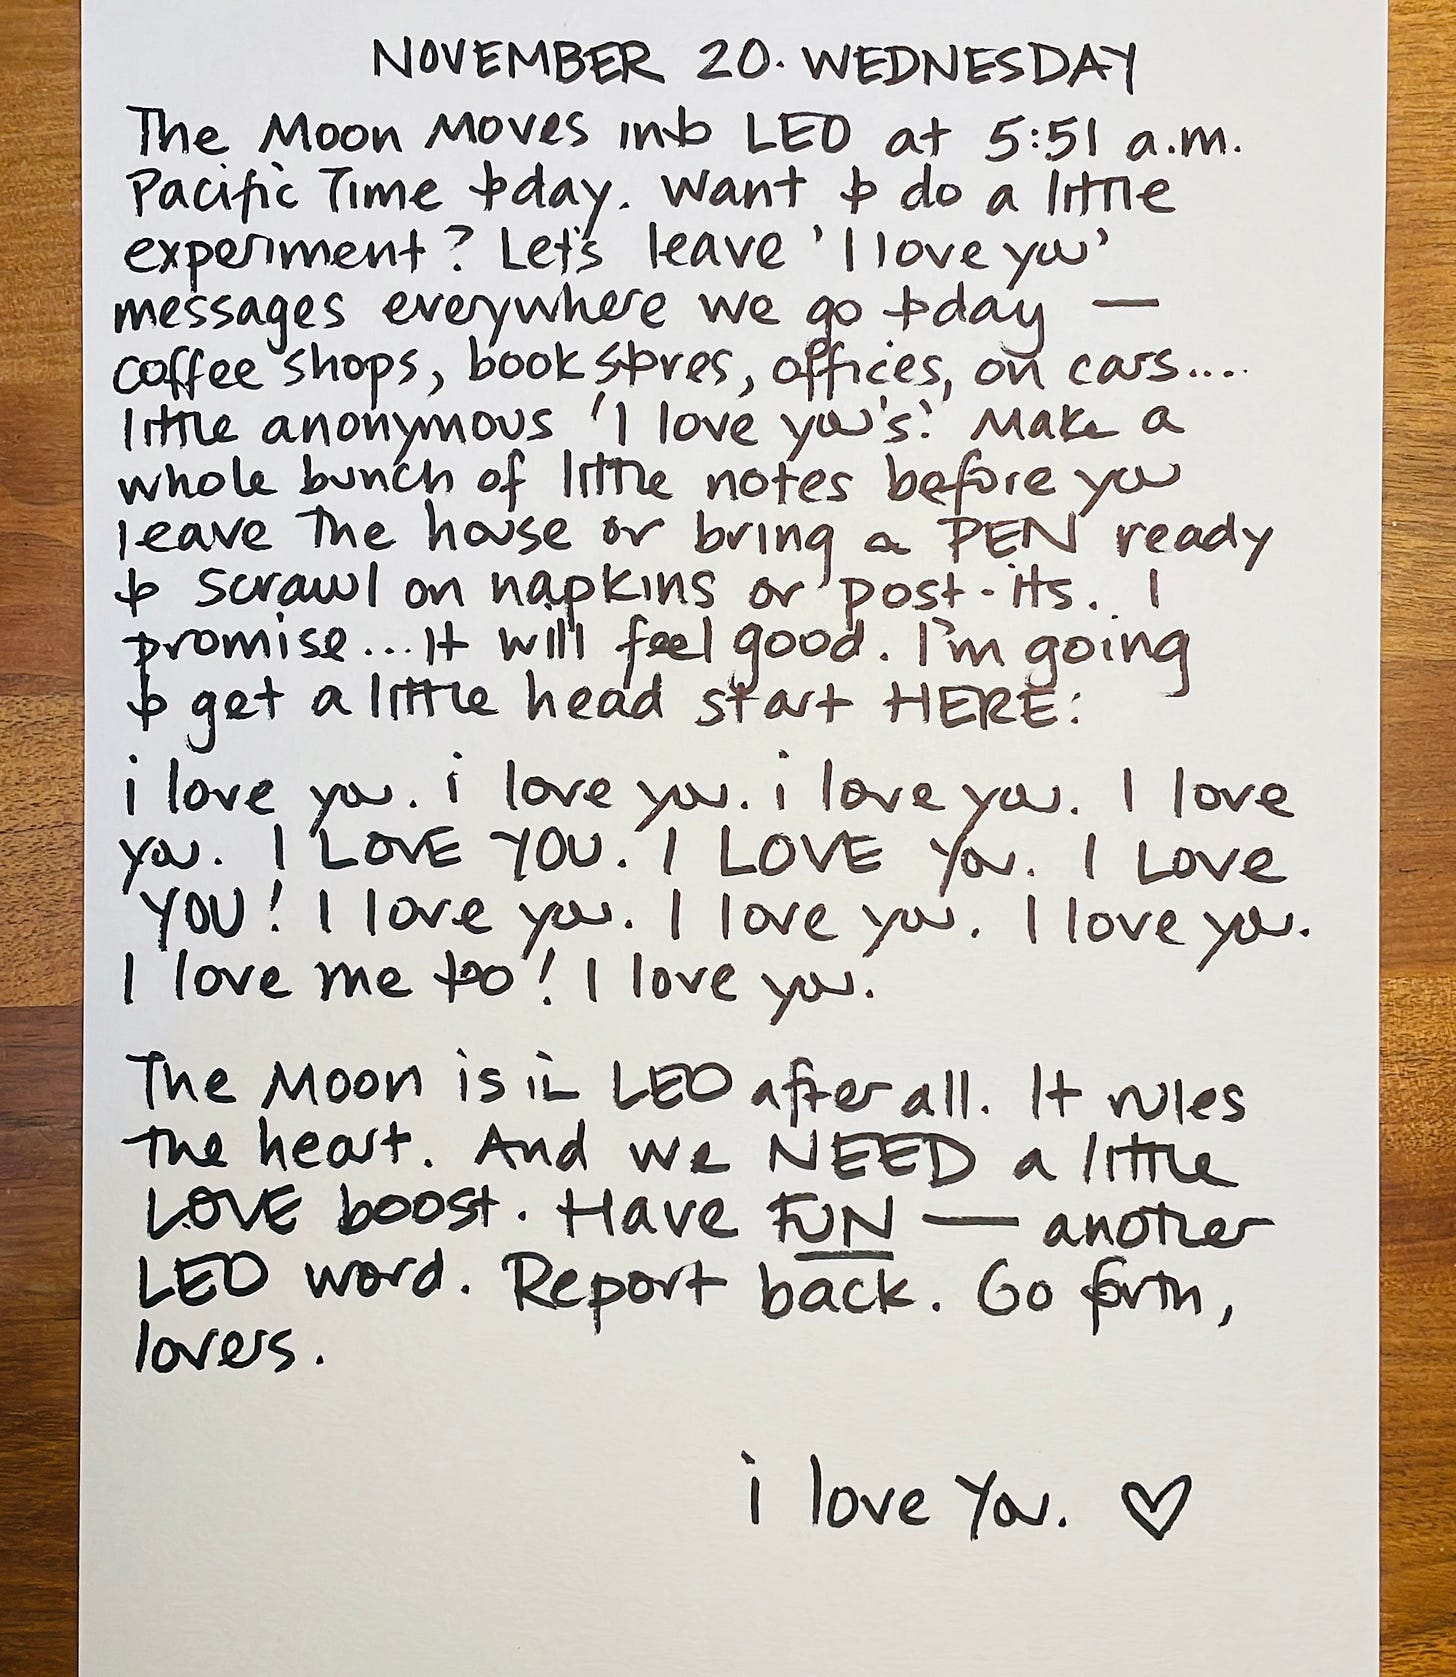 NOVEMBER 20. WEDNESDAY
The Moon moves into LEO at 5:51 a.m.
Pacific Time today. Want to do a little
experiment? Let's leave 'I love you'
messages everywhere we go today —
coffee shops, book stores, offices, on cars....
little anonymous 'I love you's.' Make a
whole bunch of little notes before you
leave the house or bring a PEN ready
to scrawl on napkins or post-its. I
promise...It will feel good. I'm going
to get a little head start HERE:
i love you. i love you. i love you. I love
you. I LOVE YOU. I LOVE You. I Love
YOU! I love you. I love you. I love you.
I love me too! I love you.
The Moon is in LEO after all. It rules
the heart. And we NEED a little
LOVE boost. Have FUN — another
LEO word. Report back. Go forth,
lovers.
i love You. ♡